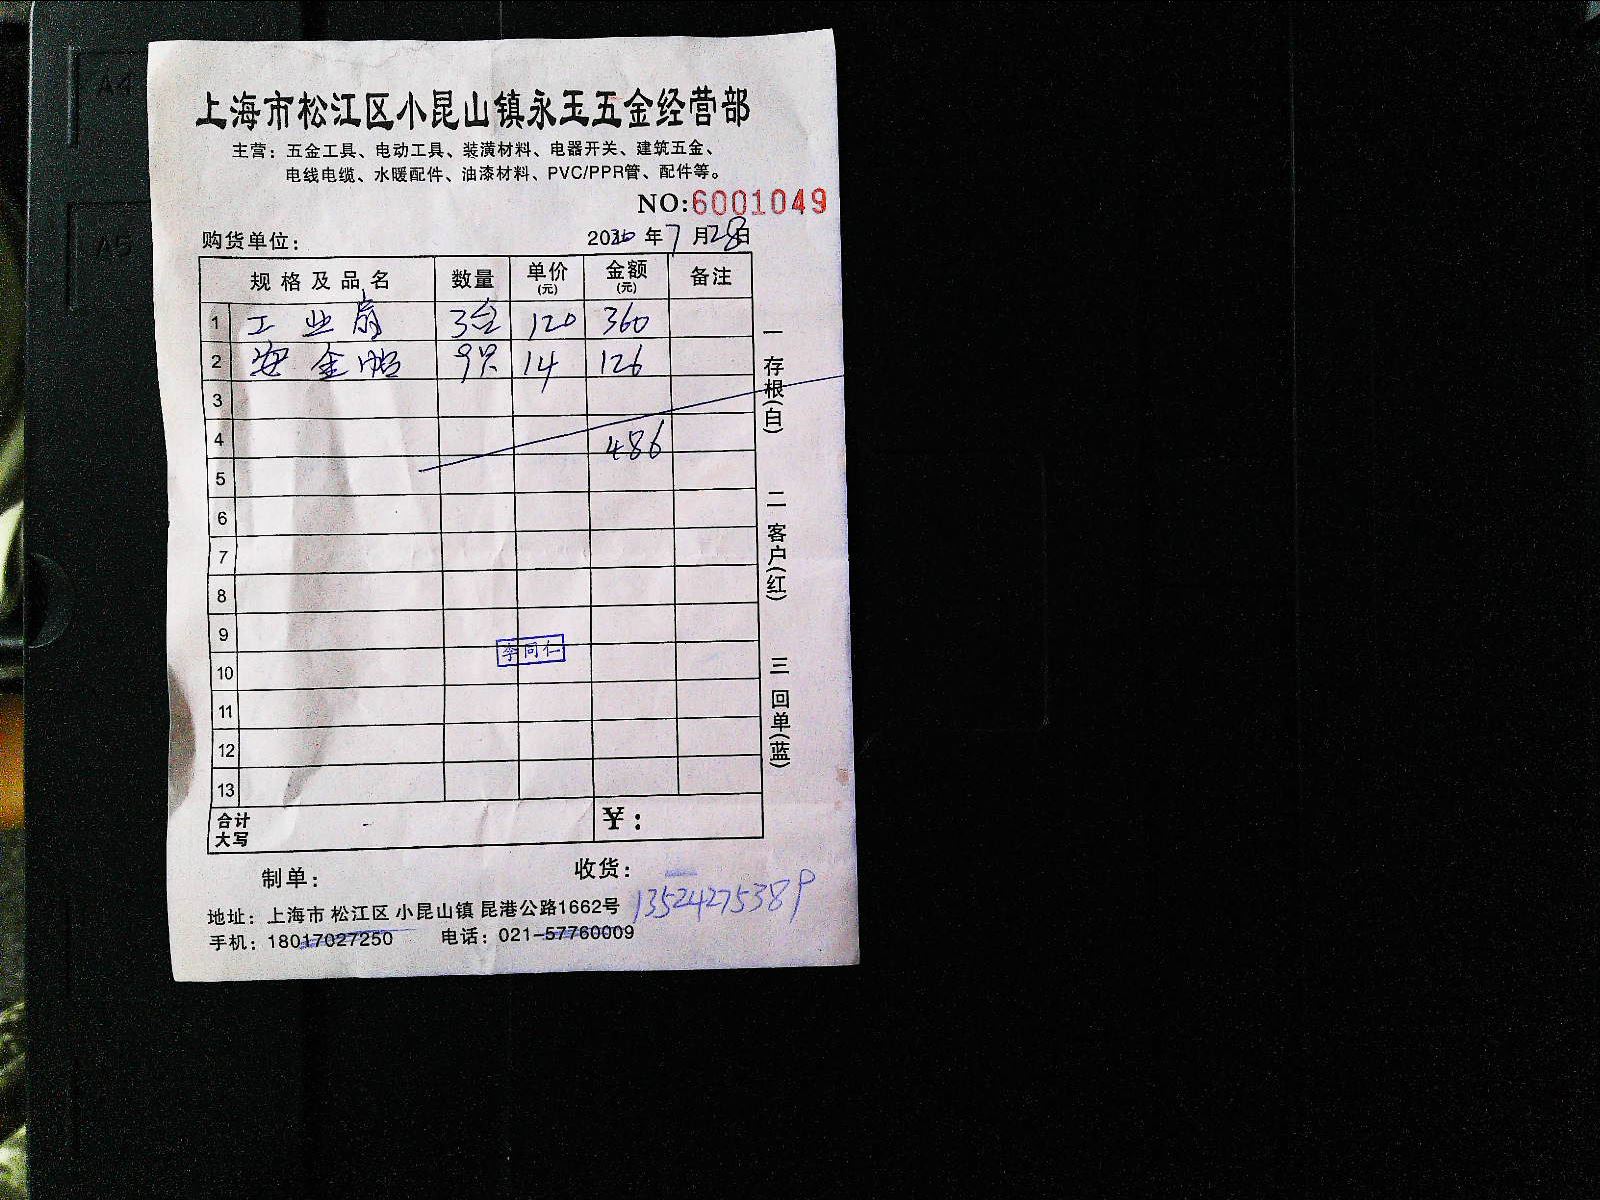 上海市松江区小昆山镇永玉五金经营部
主营：五金工具、电动工具、装潢材料、电器开关、建筑五金、
电线电缆、水暖配件、油漆材料、PVC/PPR管、配件等。
NO:6001049
购货单位： 2020年7月28日
规格及品名 数量 单价(元) 金额(元) 备注
1 工业扇 3台 120 360
2 安全帽 9只 14 126
3
4 486
5
6
7
8
9
李同仁
10
11
12
13
合计大写 ¥：
一存根(白)
二客户(红)
三回单(蓝)
制单： 收货：
地址：上海市松江区小昆山镇昆港公路1662号 13524275389
手机：18017027250 电话：021-57760009
A4
A5